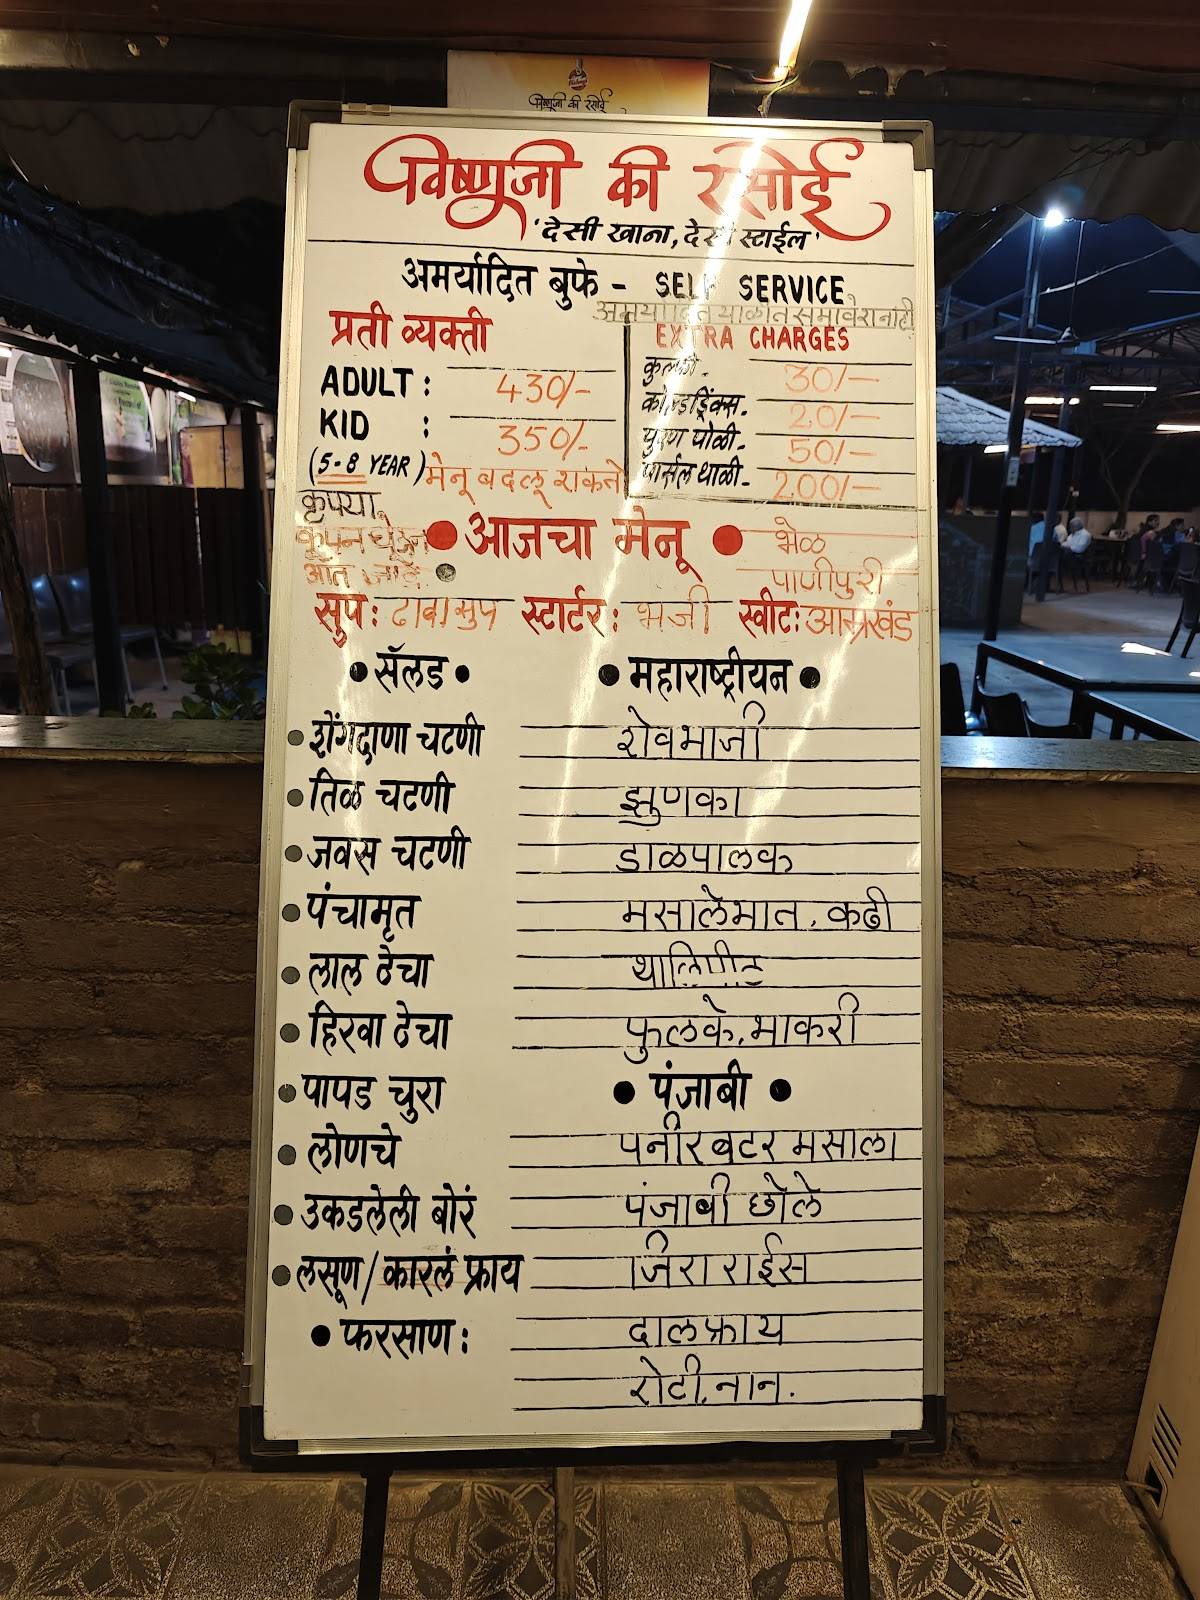 विष्णुजी की रसोई
विष्णुजी की रसोई
'देसी खाना, देसी स्टाईल'
अमर्यादित बुफे - SELF SERVICE
अमर्यादित थाळीत समावेश नाही
प्रती व्यक्ती
EXTRA CHARGES
ADULT : 430/-
KID : 350/-
(5-8 YEAR) मेनू बदलू शकतो
कुल्फी. 30/-
कोल्डड्रिंक्स. 20/-
पुरण पोळी. 50/-
पार्सल थाळी. 200/-
कृपया
कूपन घेऊन
आत जावे
● आजचा मेनू ●
भेळ
पाणीपुरी
सुप: टोमॅ सुप स्टार्टर: भजी स्वीट: आम्रखंड
• सॅलड •
• शेंगदाणा चटणी
• तिळ चटणी
• जवस चटणी
• पंचामृत
• लाल ठेचा
• हिरवा ठेचा
• पापड चुरा
• लोणचे
• उकडलेली बोरं
• लसूण/कारलं फ्राय
• फरसाण:
• महाराष्ट्रीयन •
शेवभाजी
झुणका
डाळपालक
मसालेभात. कढी
थालिपीठ
फुलके. भाकरी
• पंजाबी •
पनीर बटर मसाला
पंजाबी छोले
जिरा राईस
दालफ्राय
रोटी. नान.